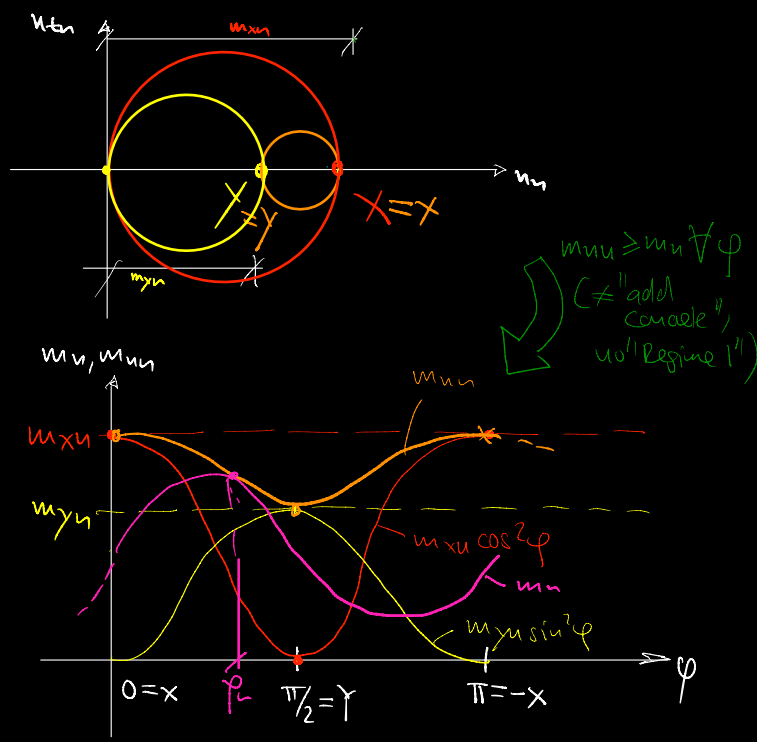 mtn
mxn
mn
Y
=Y
X=X
myn
mnu ≥ mn ∀ φ
(≠"add
concrete",
no "Regime 1")
mn, mnu
mnu
mxu
myu
mxu cos²φ
mn
myu sin²φ
0=X
φu
π/2=Y
π=-X
φ